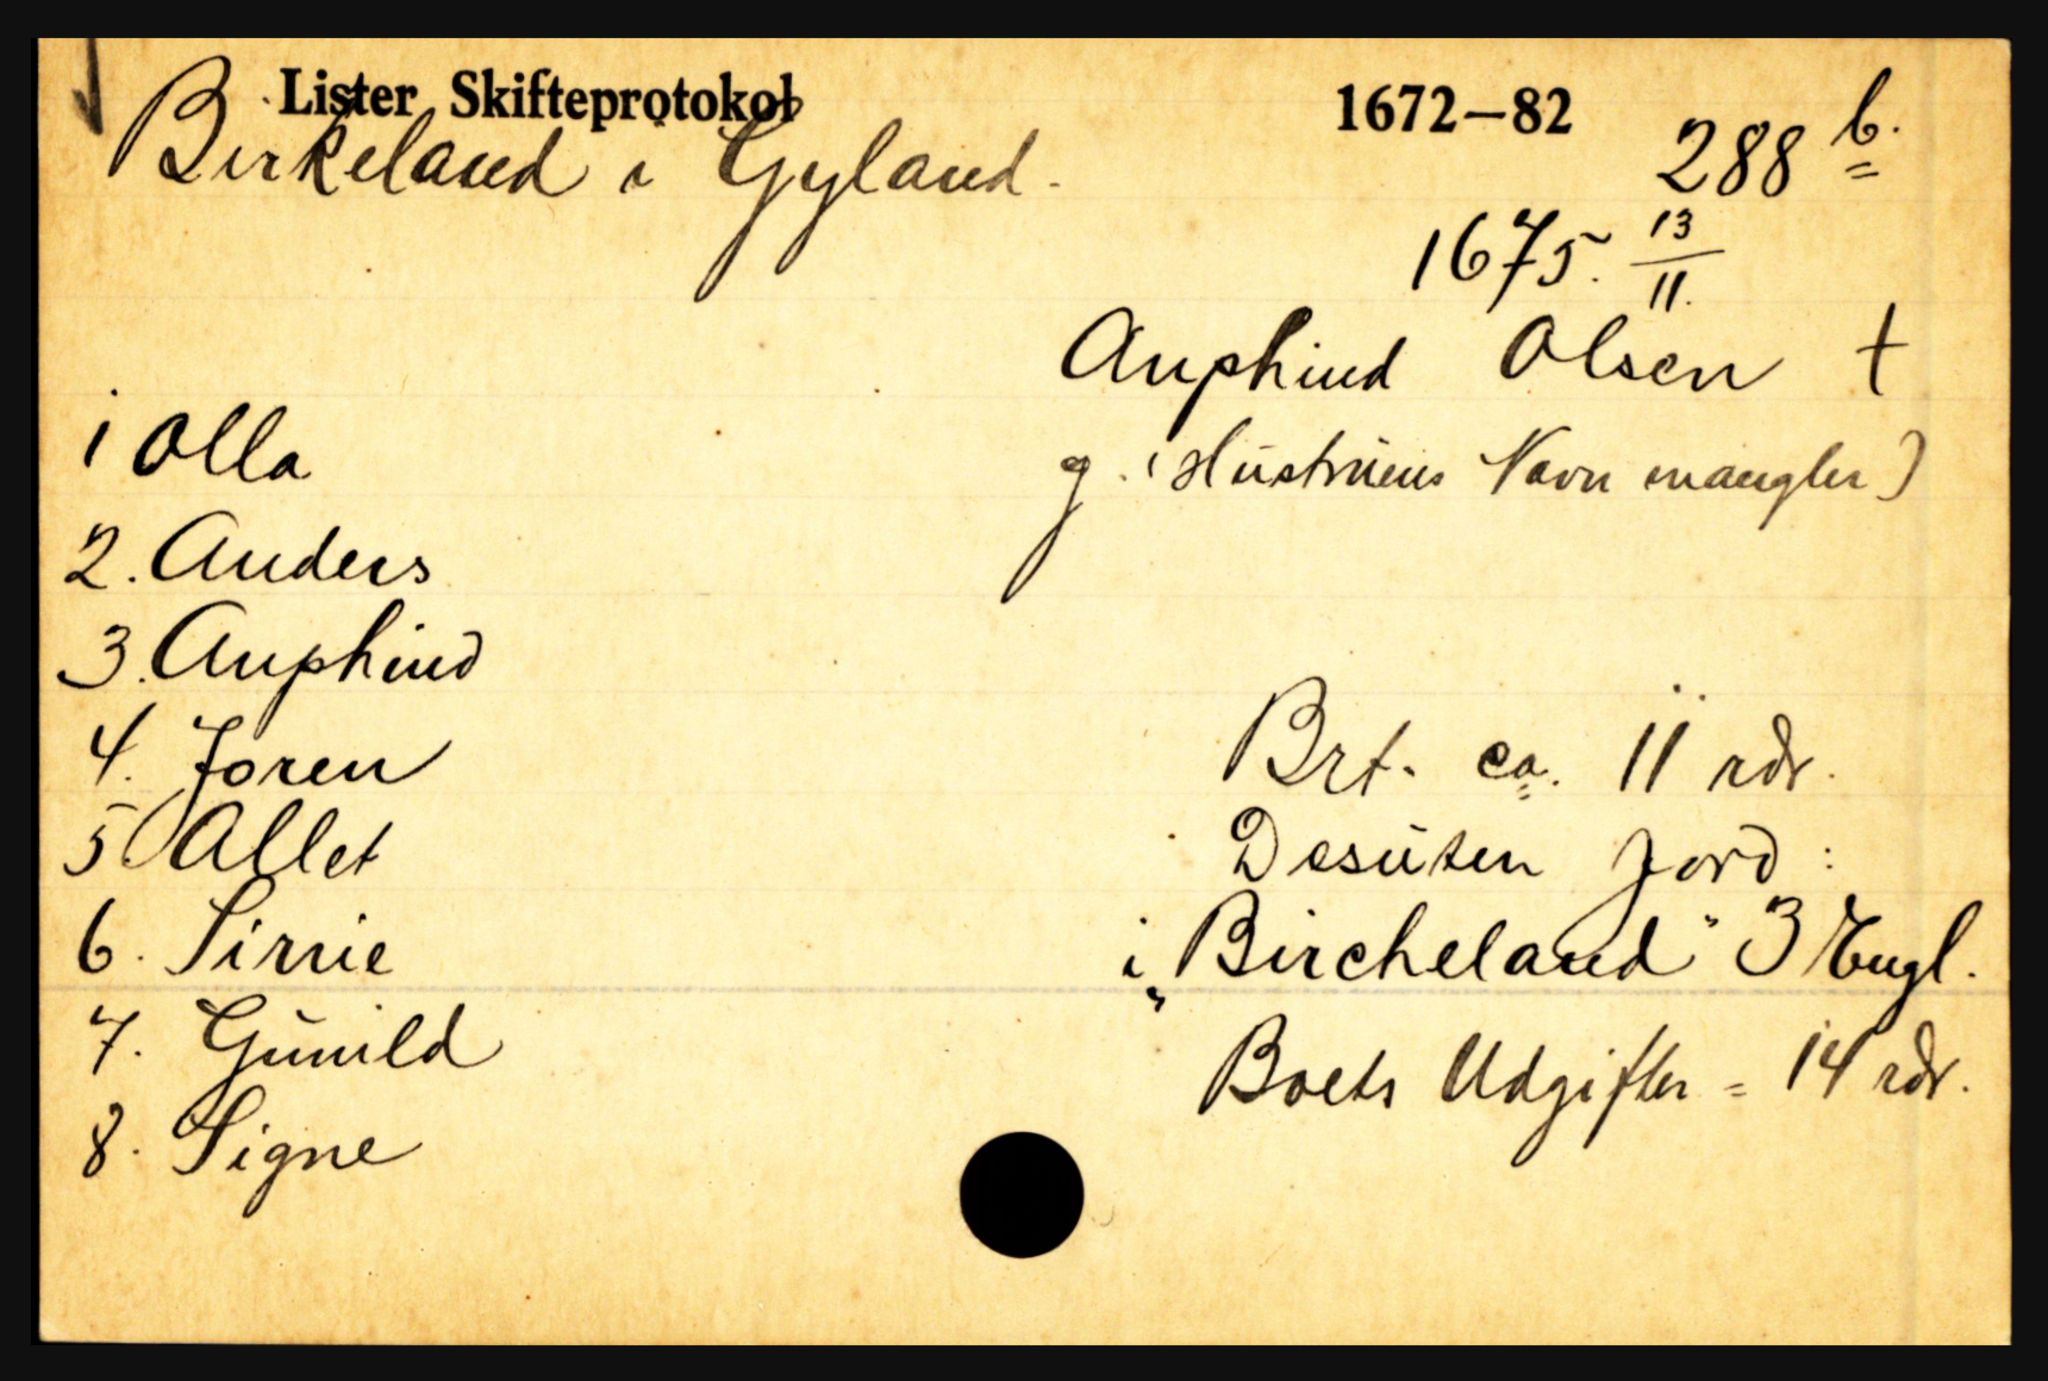 Lister Skifteprotokol 1672–82
Birkeland i Gyland. 288 b.
1675. 13/11.
Anphind Olsen †
g. (Hustruens Navn mangler)
1 Olla
2. Anders
3. Anphind
4. Joren
5. Allet
6. Sirrie
7. Gunild
8. Signe
Brt. ca. 11 rdr.
Desuten Jord:
i „Bircheland" 3 Engl.
Boets Udgifter = 14 rdr.